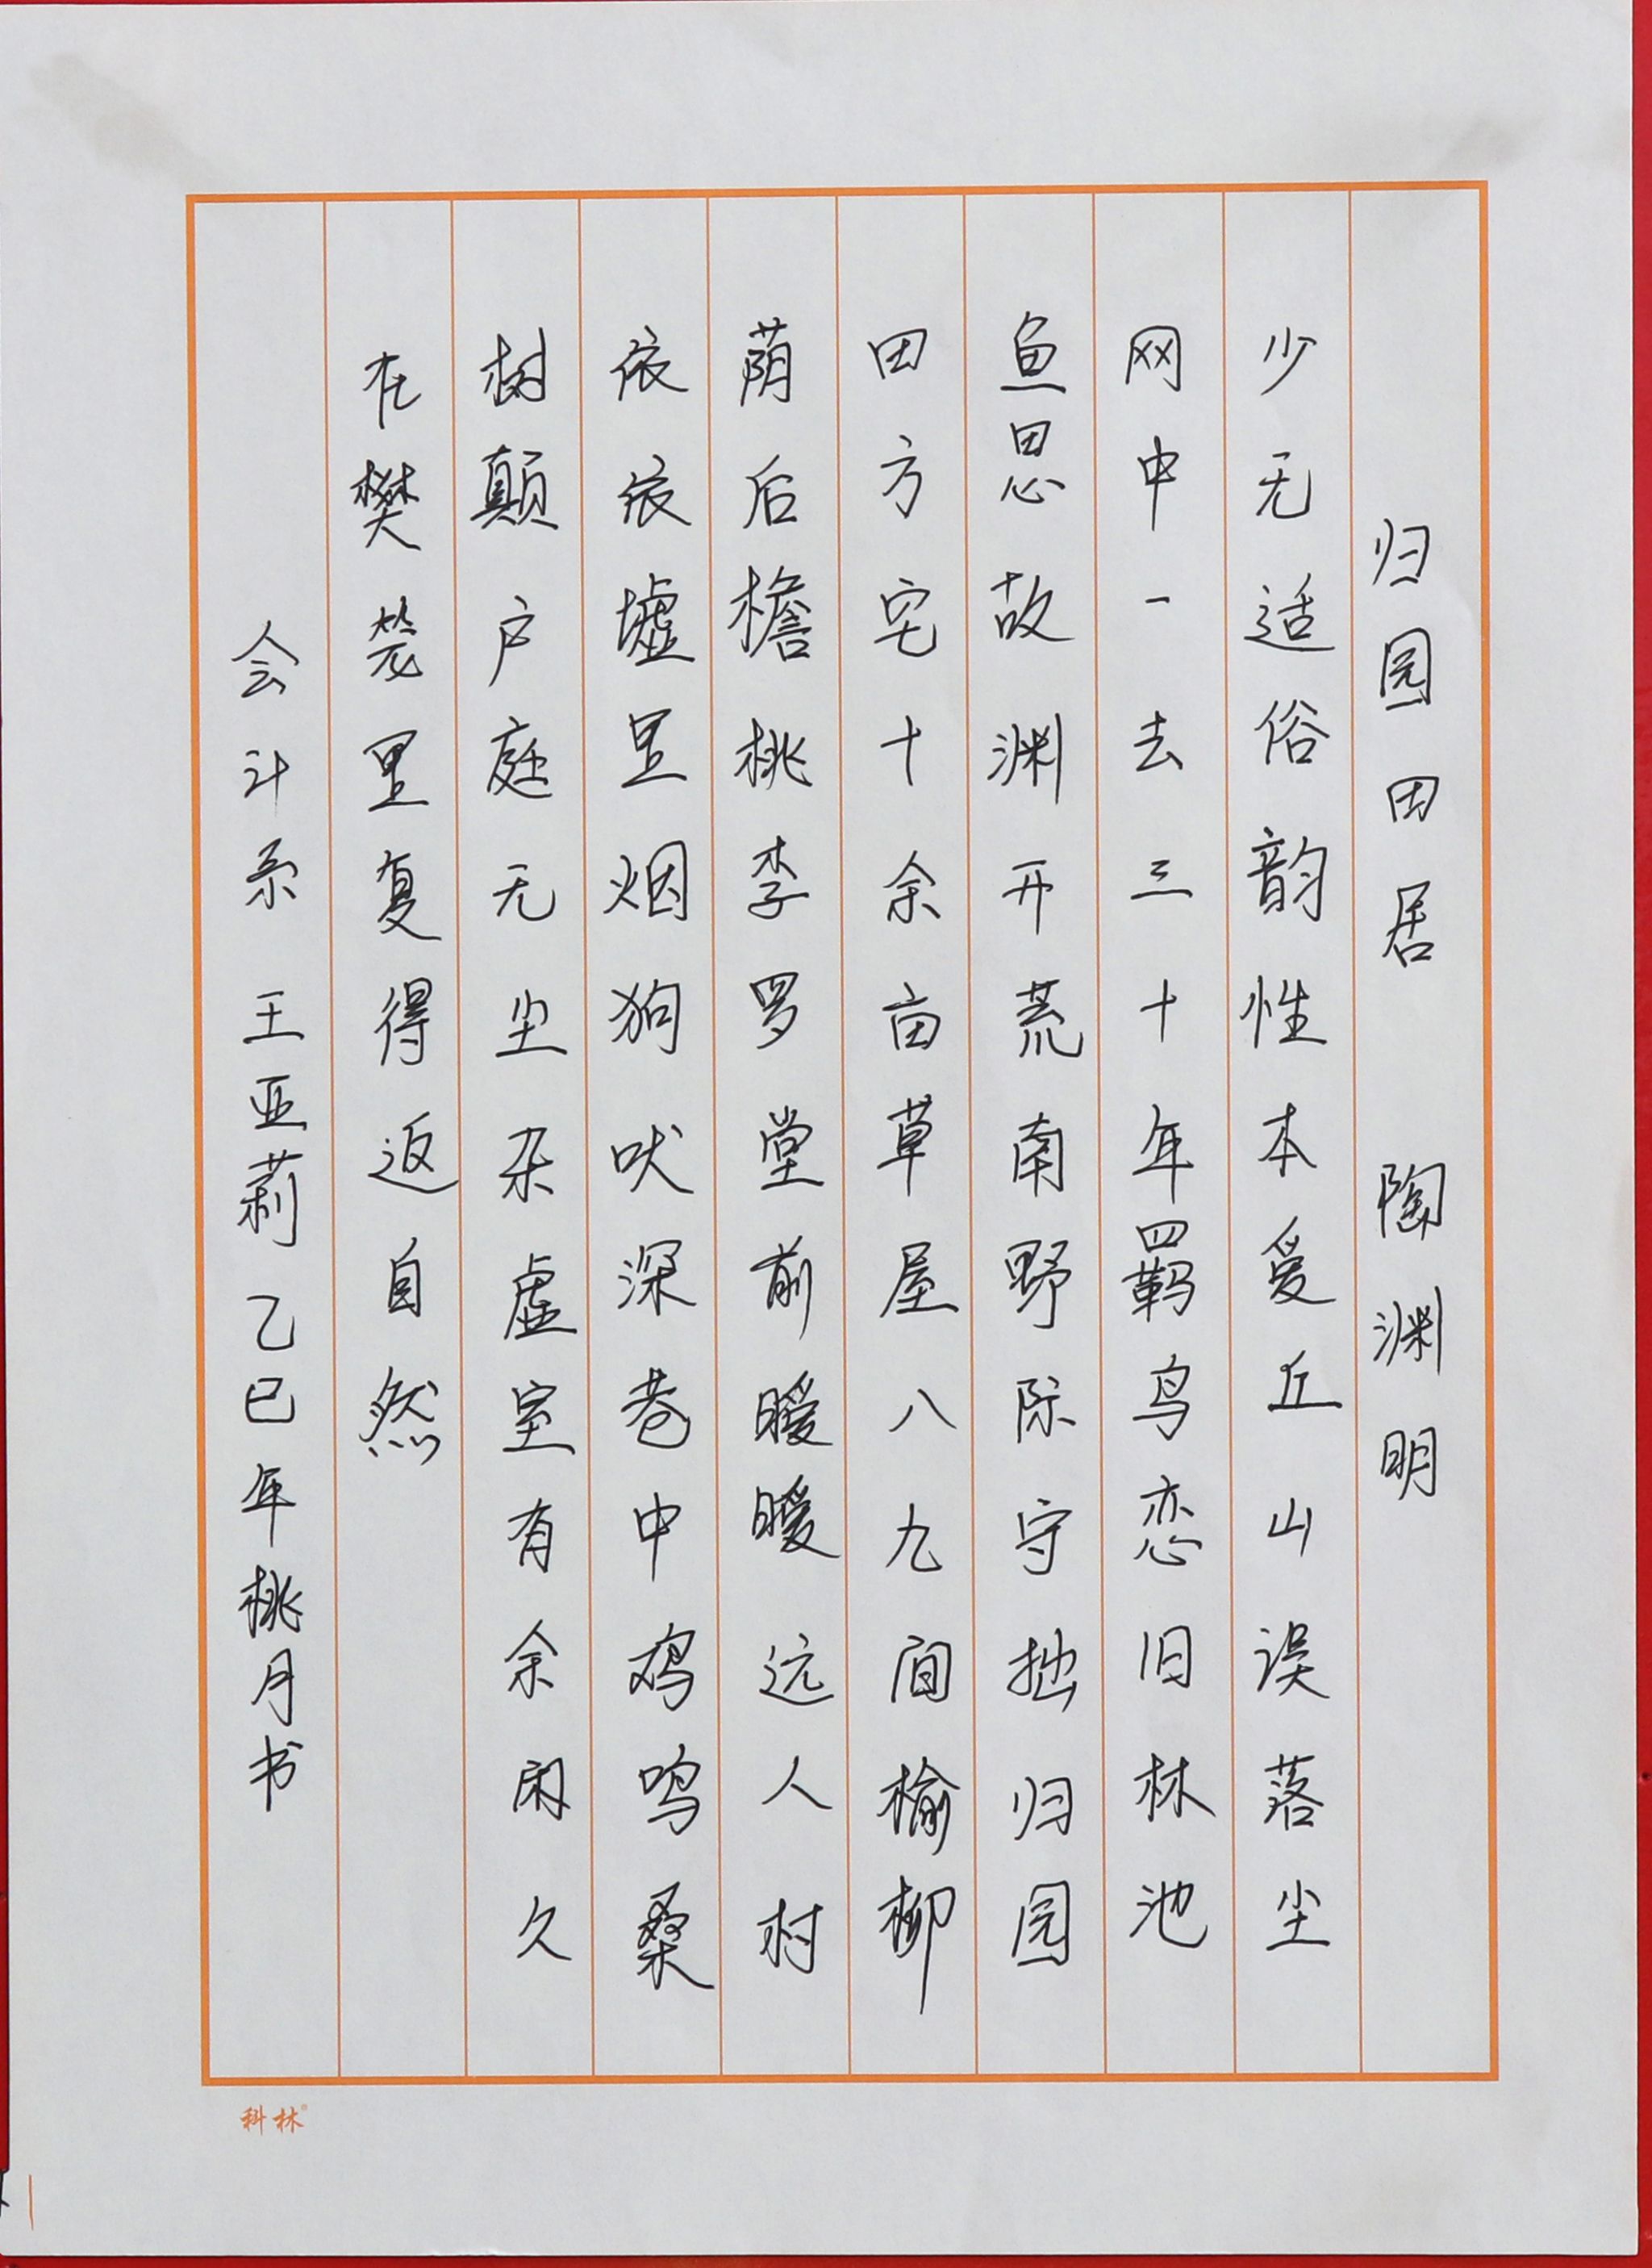 归园田居 陶渊明
少无适俗韵性本爱丘山误落尘
网中一去三十年羁鸟恋旧林池
鱼思故渊开荒南野际守拙归园
田方宅十余亩草屋八九间榆柳
荫后檐桃李罗堂前暧暧远人村
依依墟里烟狗吠深巷中鸡鸣桑
树颠户庭无尘杂虚室有余闲久
在樊笼里复得返自然
会计系 王亚莉 乙巳年桃月书
科林®